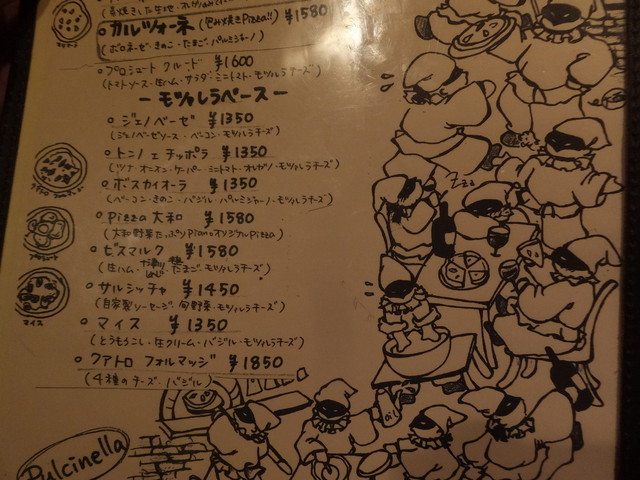 カルツォーネ (包み焼きPizza!!) ¥1580
(ボロネーゼ・きのこ・たまご・パルミジャーノ)
プロシュート クルード ¥1600
(トマトソース・生ハム・サラダ・ミニトマト・モツァレラチーズ)
ーモツァレラベースー
ジェノベーゼ ¥1350
(ジェノベーゼソース・ベーコン・モツァレラチーズ)
トンノ エ チッポラ ¥1350
(ツナ・オニオン・ケーパー・ミニトマト・オレガノ・モツァレラチーズ)
ボスカイオーラ ¥1350
(ベーコン・きのこ・バジル・パルミジャーノ・モツァレラチーズ)
Pizza 大和 ¥1580
(大和野菜たっぷりPianoオリジナルPizza)
ビスマルク ¥1580
(生ハム・たまご・モツァレラチーズ)
サルシッチャ ¥1450
(自家製ソーセージ・旬野菜・モツァレラチーズ)
マイス ¥1350
(とうもろこし・生クリーム・バジル・モツァレラチーズ)
クアトロ フォルマッジ ¥1850
(4種のチーズ・バジル)
マイス
Zzz
oil
Pulcinella